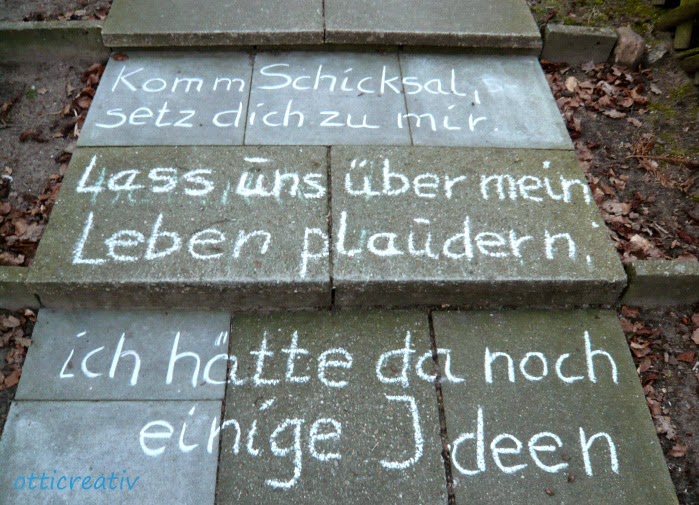 Komm Schicksal,
setz dich zu mir.
Lass uns über mein
Leben plaudern;
ich hätte da noch
einige Ideen
otticreativ